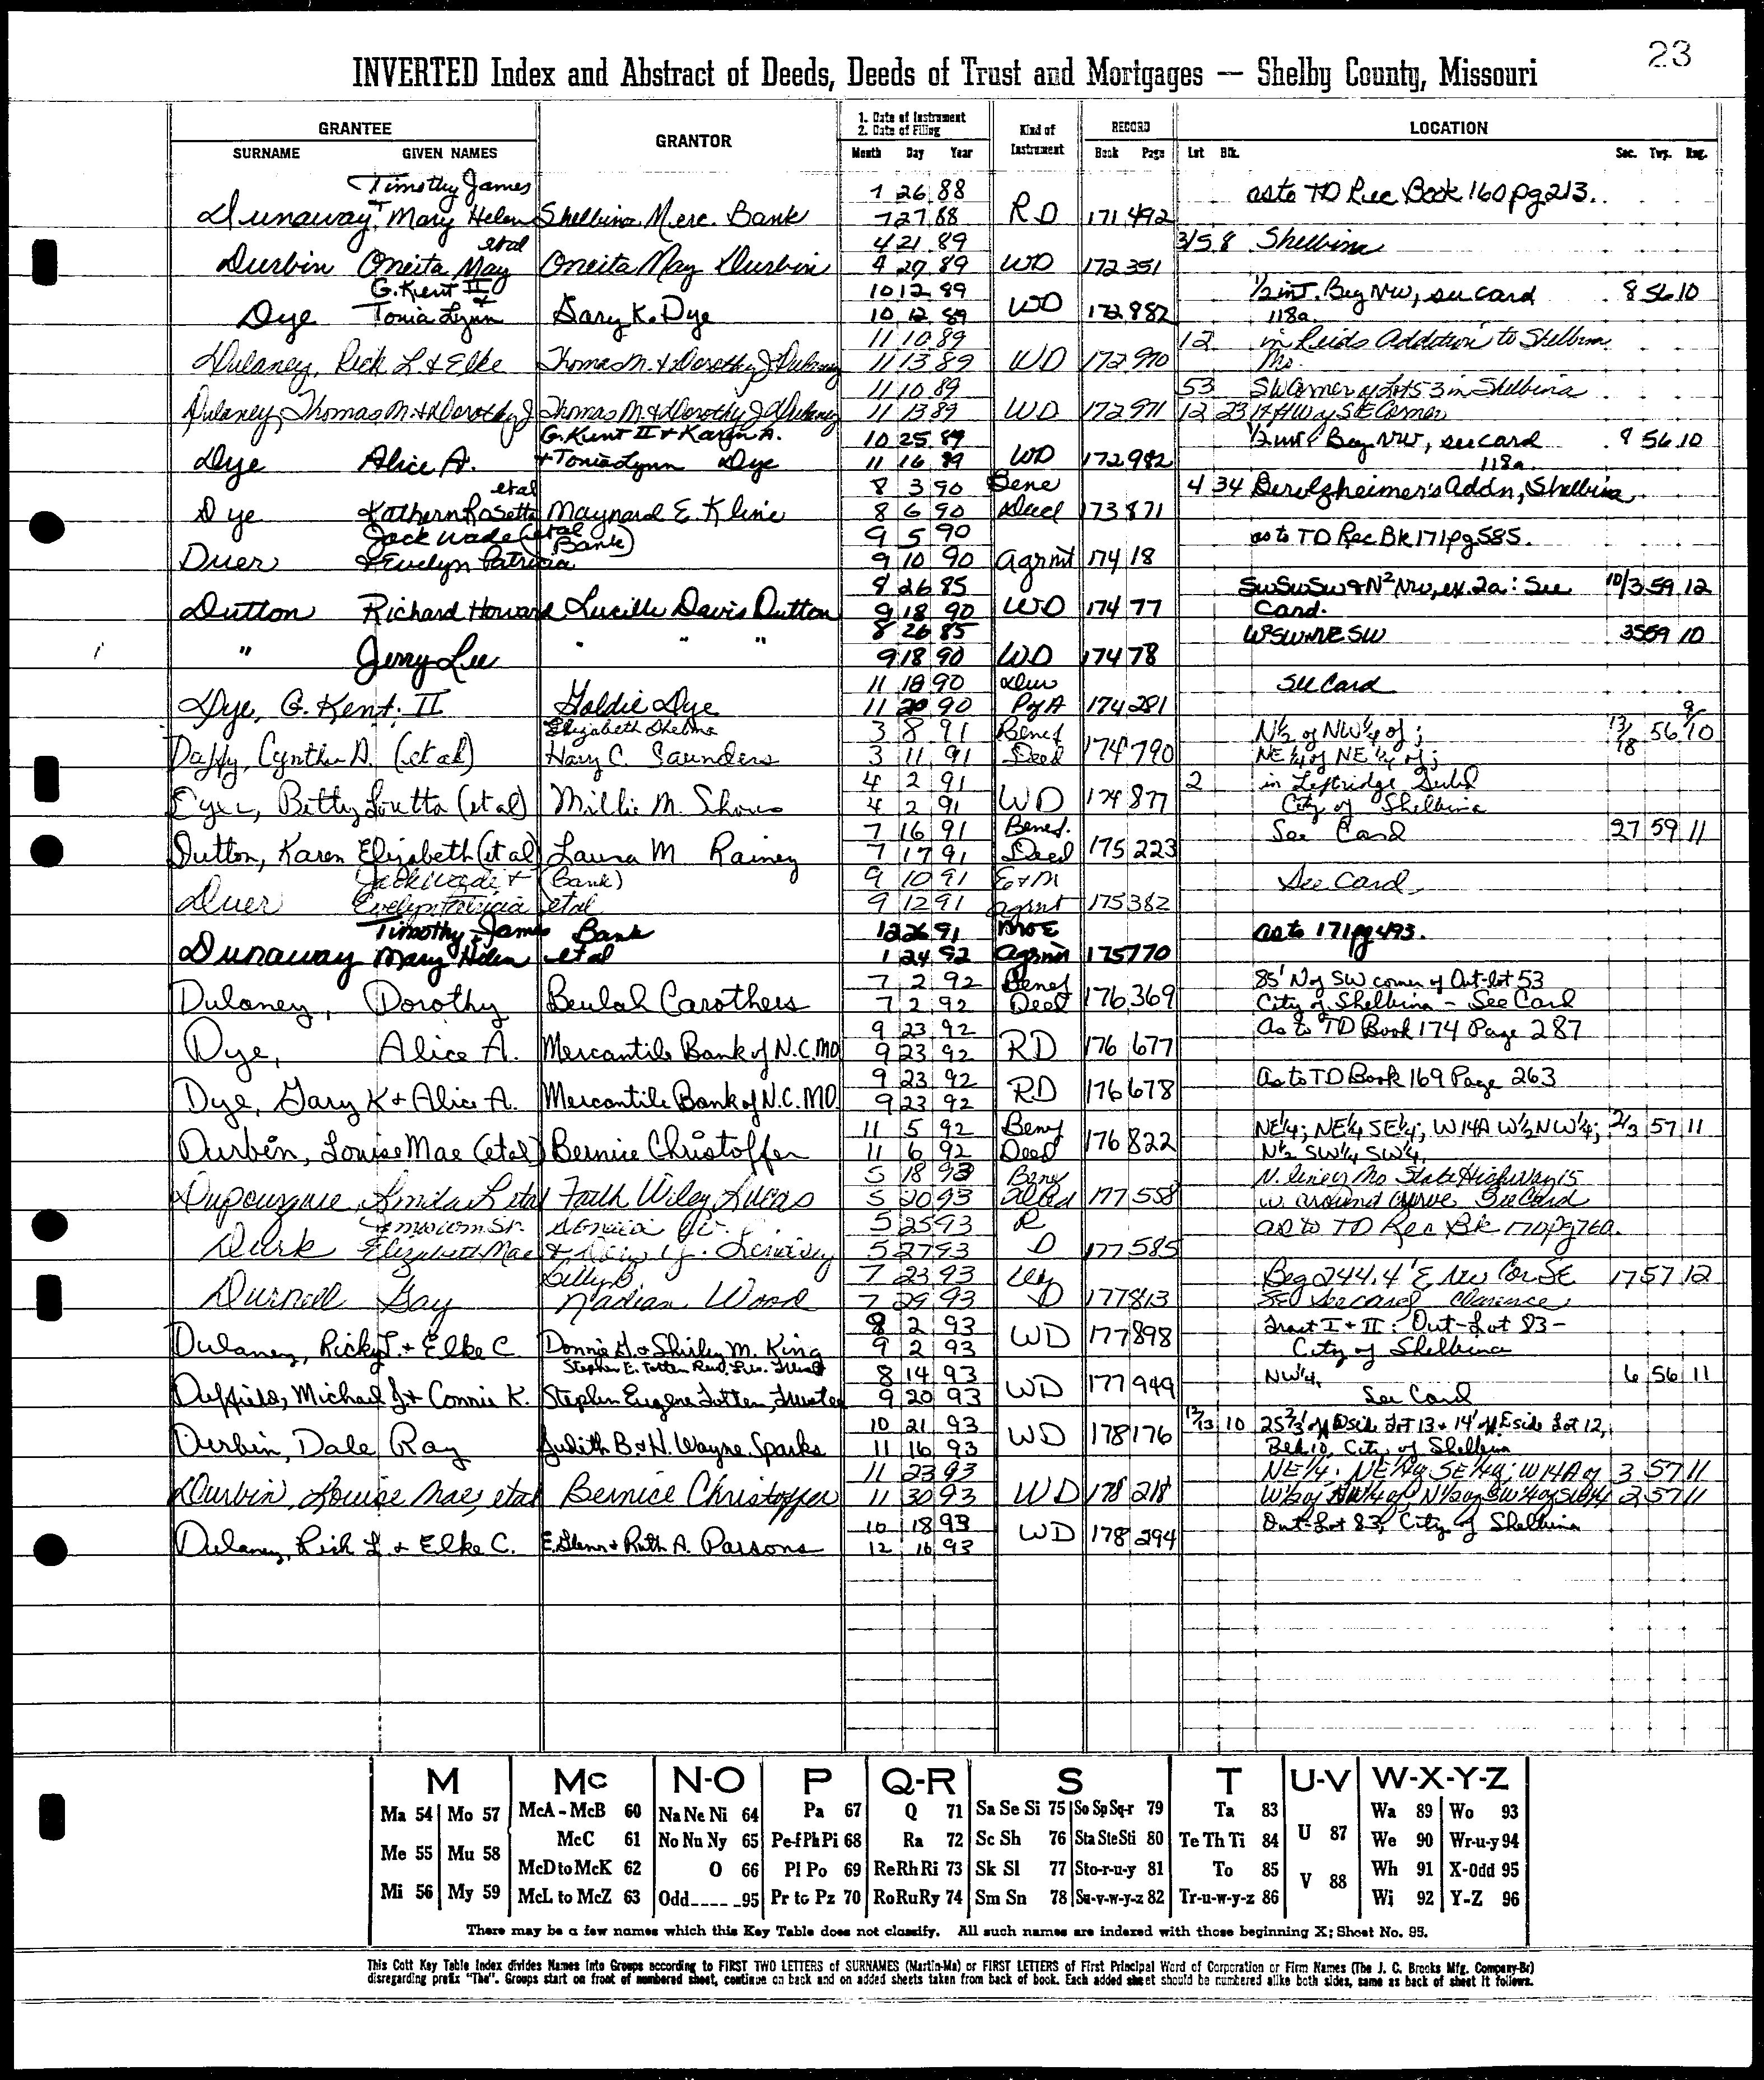 23
INVERTED Index and Abstract of Deeds, Deeds of Trust and Mortgages — Shelby County, Missouri
GRANTEE
SURNAME GIVEN NAMES
GRANTOR
1. Date of Instrument
2. Date of Filing
Month Day Year
Kind of Instrument
RECORD
Book Page
LOCATION
Lot Blk. Sec. Twp. Rng.
Timothy James 7 26 88 as to TD Rec Book 160 pg 213.
Dunaway, Mary Helen Shelbina Merc. Bank 7 27 88 RD 171 492
etal 4 21 89 3/5 8 Shelbina
Durbin Oneita May Oneita May Durbin 4 27 89 WD 172 351
G. Kent II & 10 12 89 1/2 int. Beg NW, see card 8 56 10
Dye Tonia Lynn Gary K. Dye 10 12 89 WD 172 882 118a
11 10 89 12 in Reids Addition to Shelbina
Dulaney, Rick L. & Elke Thomas M. & Dorothy J Dulaney 11 13 89 WD 172 970 Mo.
11 10 89 53 SW Corner of Lot 53 in Shelbina
Dulaney, Thomas M. & Dorothy J Thomas M. & Dorothy J Dulaney 11 13 89 WD 172 971 12 23 ft NW of SE Corner
G. Kent II & Karen A. 10 25 89 1/2 int Beg NW, see card 8 56 10
Dye Alice A. & Tonia Lynn Dye 11 16 89 WD 172 982 118a.
etal 8 3 90 Bene 4 34 Berolzheimer's Addn, Shelbina
Dye Kathern Rosetta Maynard E. Kline 8 6 90 Deed 173 871
Jack Wade (etal Bank) 9 5 90 as to TD Rec Bk 171 pg 585.
Duer & Evelyn Patricia 9 10 90 Agrmt 174 18
8 26 85 SWSWSW & N² NW, ex. 2a: See 10/3 59 12
Dutton Richard Howard Lucille Davis Dutton 9 18 90 WD 174 77 Card.
8 26 85 W²SWNESW 35 59 10
" Jerry Lee " " " 9 18 90 WD 174 78
11 18 90 Dur See Card
Dye, G. Kent, II Goldie Dye 11 20 90 P of A 174 281
Elizabeth Thelma 3 8 91 Benef N½ of NW¼ of; 13/18 56 9/10
Daffy, Cynthia A. (et al) Harry C. Saunders 3 11 91 Deed 174 790 NE¼ of NE¼ of;
4 2 91 2 in Leftridge Subd
Eyer, Betty Loretta (et al) Millie M. Shous 4 2 91 WD 174 877 City of Shelbina
7 16 91 Benef. See Card 27 59 11
Dutton, Karen Elizabeth (et al) Laura M Rainey 7 17 91 Deed 175 223
Jack Wade & (Bank) 9 10 91 E & M See Card
Duer Evelyn Patricia etal 9 12 91 Agrmt 175 382
Timothy James Bank 12 26 91 as to 171 pg 493.
Dunaway Mary Helen etal 1 24 92 Agrmt 175 770
7 2 92 Benef 85' N of SW corner of Out-lot 53
Dulaney, Dorothy Beulah Carothers 7 2 92 Deed 176 369 City of Shelbina - See Card
9 23 92 As to TD Book 174 Page 287
Dye, Alice A. Mercantile Bank of N.C. MO 9 23 92 RD 176 677
9 23 92 As to TD Book 169 Page 263
Dye, Gary K & Alice A. Mercantile Bank of N.C. MO. 9 23 92 RD 176 678
11 5 92 Benf NE¼; NE¼ SE¼; W 14A W½ NW¼; 2/3 57 11
Durbin, Louise Mae (etal) Bernice Christoffer 11 6 92 Deed 176 822 N½ SW¼ SW¼
5 18 93 Benf N. line of Mo State Highway 15
etal Faith Wiley Lucas 5 20 93 Deed 177 558 w. around curve See Card
5 25 93 R as to TD Rec Bk 170 pg 760.
Durk Elizabeth Mae 5 27 93 D 177 585
Billy B. 7 23 93 Beg 244.4' E NW Cor SE 17 57 12
Durnell Gay Nadian Wood 7 29 93 D 177 813 See card Clarence
8 2 93 Tract I & II: Out-Lot 83-
Dulaney, Ricky L. & Elke C. Donnie G. & Shirley M. King 9 2 93 WD 177 898 City of Shelbina
Stephen E. Totten Rev. Liv. Trust 8 14 93 NW¼, 6 56 11
Duffield, Michael J. & Connie K. Stephen Eugene Totten, Trustee 9 20 93 WD 177 949 See Card
10 21 93 12/13 10 25⅔' of side Lot 13 & 14' of E side Lot 12,
Durbin, Dale Ray Judith B. & H. Wayne Sparks 11 16 93 WD 178 176 Blk 10, City of Shelbina
11 23 93 NE¼; NE¼ of SE¼; W 14A of 3 57 11
Durbin, Louise Mae, etal Bernice Christoffer 11 30 93 WD 178 218 W½ of NW¼ of; N½ of SW¼ of SW¼ 2 57 11
10 18 93 Out-Lot 83, City of Shelbina
Dulaney, Rick L. & Elke C. E. Glenn & Ruth A. Parsons 12 16 93 WD 178 294
M Mc N-O P Q-R S T U-V W-X-Y-Z
Ma 54 Mo 57 McA-McB 60 Na Ne Ni 64 Pa 67 Q 71 Sa Se Si 75 So Sp Sq-r 79 Ta 83 U 87 Wa 89 Wo 93
Me 55 Mu 58 McC 61 No Nu Ny 65 Pe-f Ph Pi 68 Ra 72 Sc Sh 76 Sta Ste Sti 80 Te Th Ti 84 We 90 Wr-u-y 94
McD to McK 62 O 66 Pl Po 69 Re Rh Ri 73 Sk Sl 77 Sto-r-u-y 81 To 85 V 88 Wh 91 X-Odd 95
Mi 56 My 59 McL to McZ 63 Odd-----95 Pr to Pz 70 Ro Ru Ry 74 Sm Sn 78 Su-v-w-y-z 82 Tr-u-w-y-z 86 Wi 92 Y-Z 96
There may be a few names which this Key Table does not classify. All such names are indexed with those beginning X; Sheet No. 95.
This Cott Key Table Index divides Names into Groups according to FIRST TWO LETTERS of SURNAMES (Martin-Ma) or FIRST LETTERS of First Principal Word of Corporation or Firm Names (The J. C. Brooks Mfg. Company-Br)
disregarding prefix "The". Groups start on front of numbered sheet, continue on back and on added sheets taken from back of book. Each added sheet should be numbered alike both sides, same as back of sheet it follows.